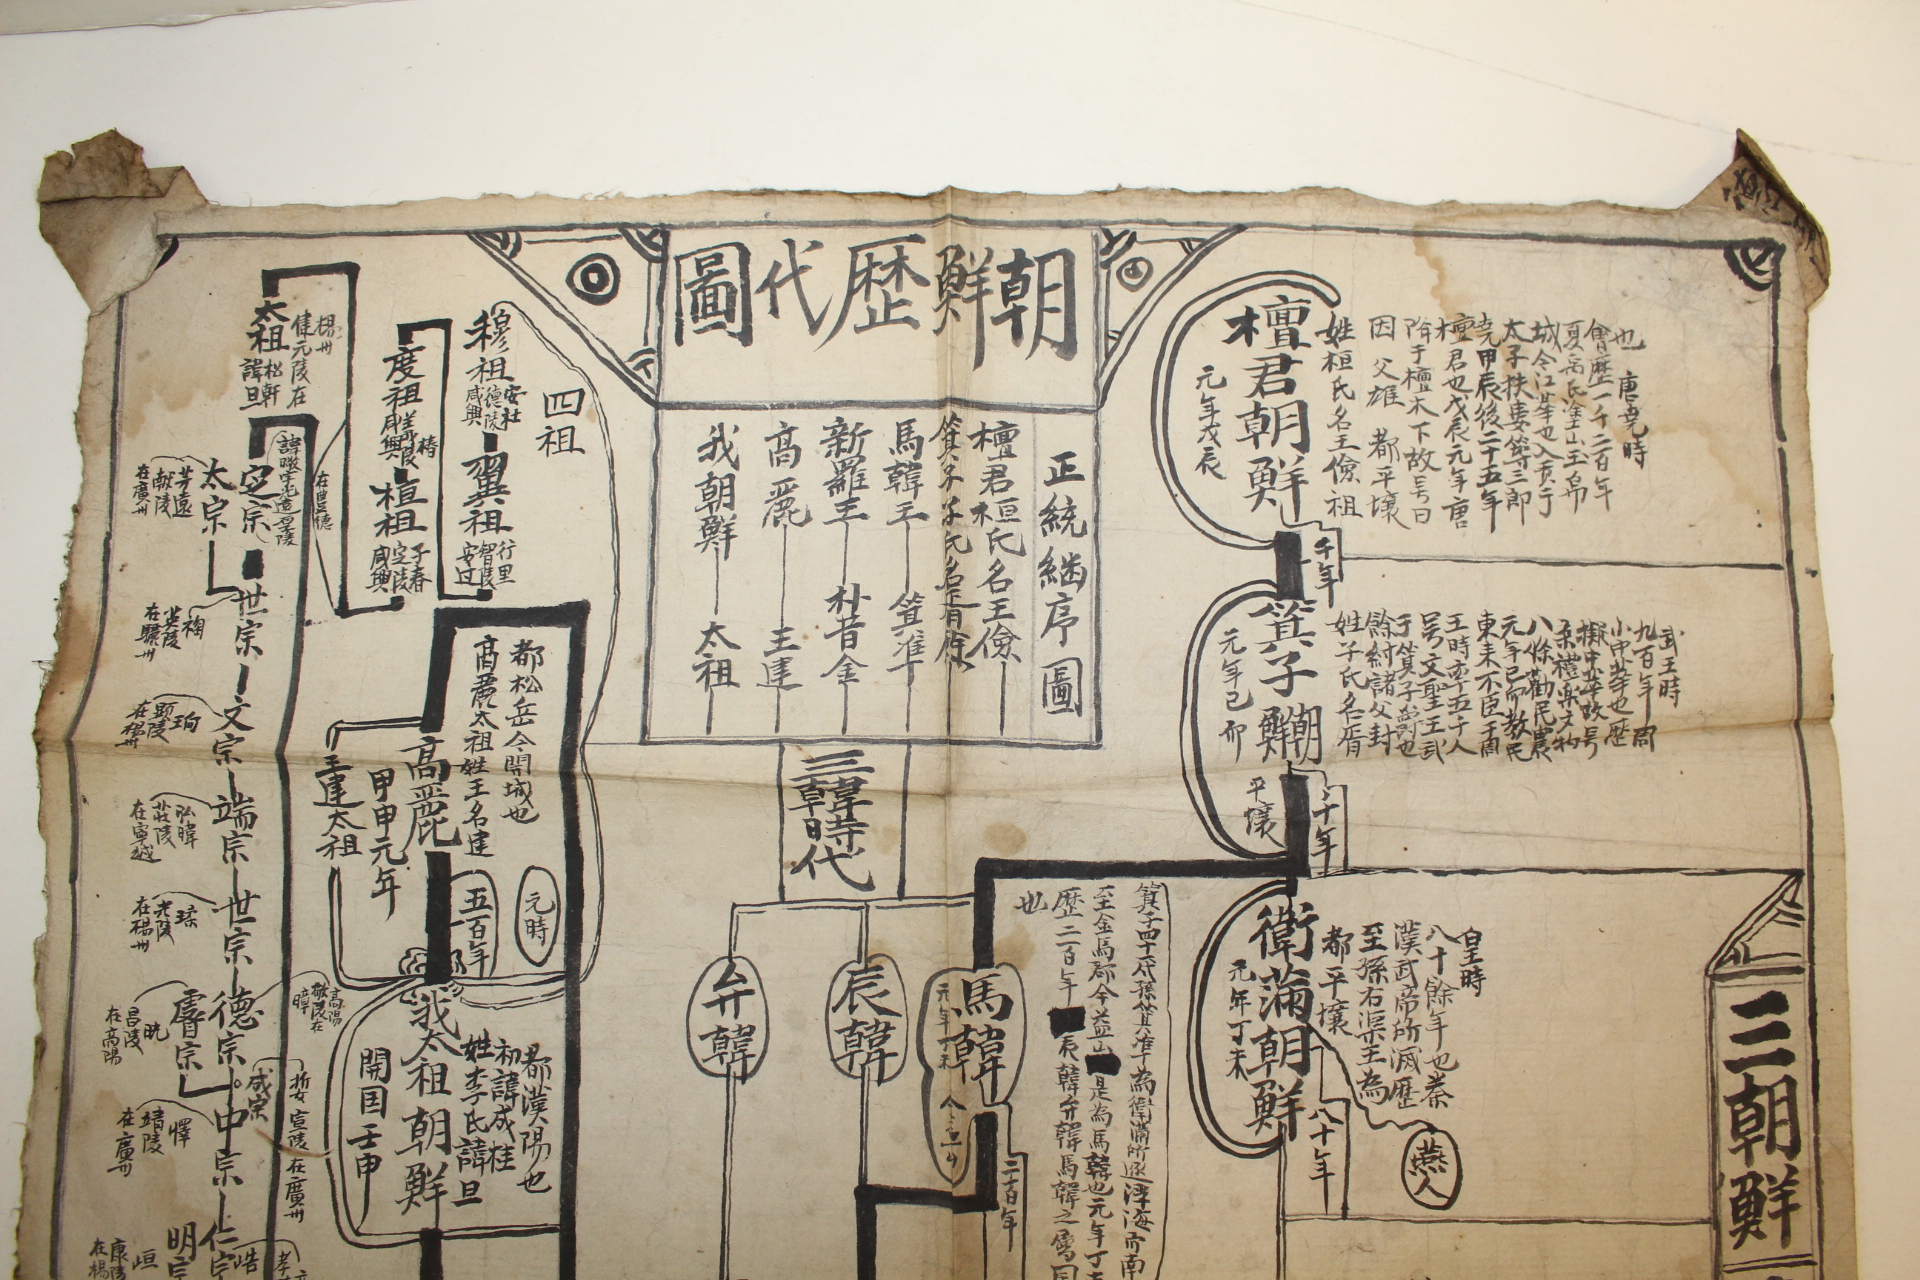 朝鮮歷代圖
正統繼序圖
檀君桓氏名王儉
箕子子氏名胥餘
馬韓王 箕準
新羅王 朴昔金
高麗 王建
我朝鮮 太祖
三韓時代
檀君朝鮮
元年戊辰
姓桓氏名王儉祖
因父雄 都平壤
降于檀木下故号曰
檀君也戊辰元年唐
堯甲辰後二十五年
太子扶婁等三郎
城今江華也入貢于
夏禹氏塗山玉帛
會歷一千二百年
也 唐堯時
千年
箕子朝鮮
元年己卯
平壤
姓子氏名胥
餘紂諸父封
于箕子爵也
号文聖王武
王時率五千人
東来不臣于周
元年己卯教民
八條勸民農
桑禮樂文物
擬中華故号
小中華也歷
九百年周
武王時
衛滿朝鮮
元年丁未
都平壤
至孫右渠王為
漢武帝所滅歷
八十餘年也秦
皇時
八十年
燕人
三朝鮮
箕子四十代孫箕準為衛滿所逐浮海而南
至金馬郡今益山是為馬韓也元年丁未
歷二百年 辰韓弁韓馬韓之屬国
也
馬韓
元年丁未
二百年
辰韓
弁韓
四祖
穆祖
安社
德陵
咸興
翼祖
行里
智陵
安辺
度祖
椿
義陵
咸興
桓祖
子春
定陵
咸興
都松岳今開城也
高麗太祖姓王名建
高麗
甲申元年
王建太祖
五百年
元時
我太祖朝鮮
都漢陽也
初諱成桂
姓李氏諱旦
開国壬申
太祖
楊州
健元陵在
松軒
諱旦
定宗
在豊德
太宗
芳遠
献陵
在廣州
世宗
裪
英陵
在驪州
文宗
珦
顕陵
在楊州
端宗
弘暐
莊陵
在寧越
世宗
瑈
光陵
在楊州
德宗
暲
敬陵在
高陽
睿宗
晄
昌陵
在高陽
成宗
宣陵
在廣州
中宗
懌
靖陵
在廣州
仁宗
峼
明宗
峘
康陵
在楊